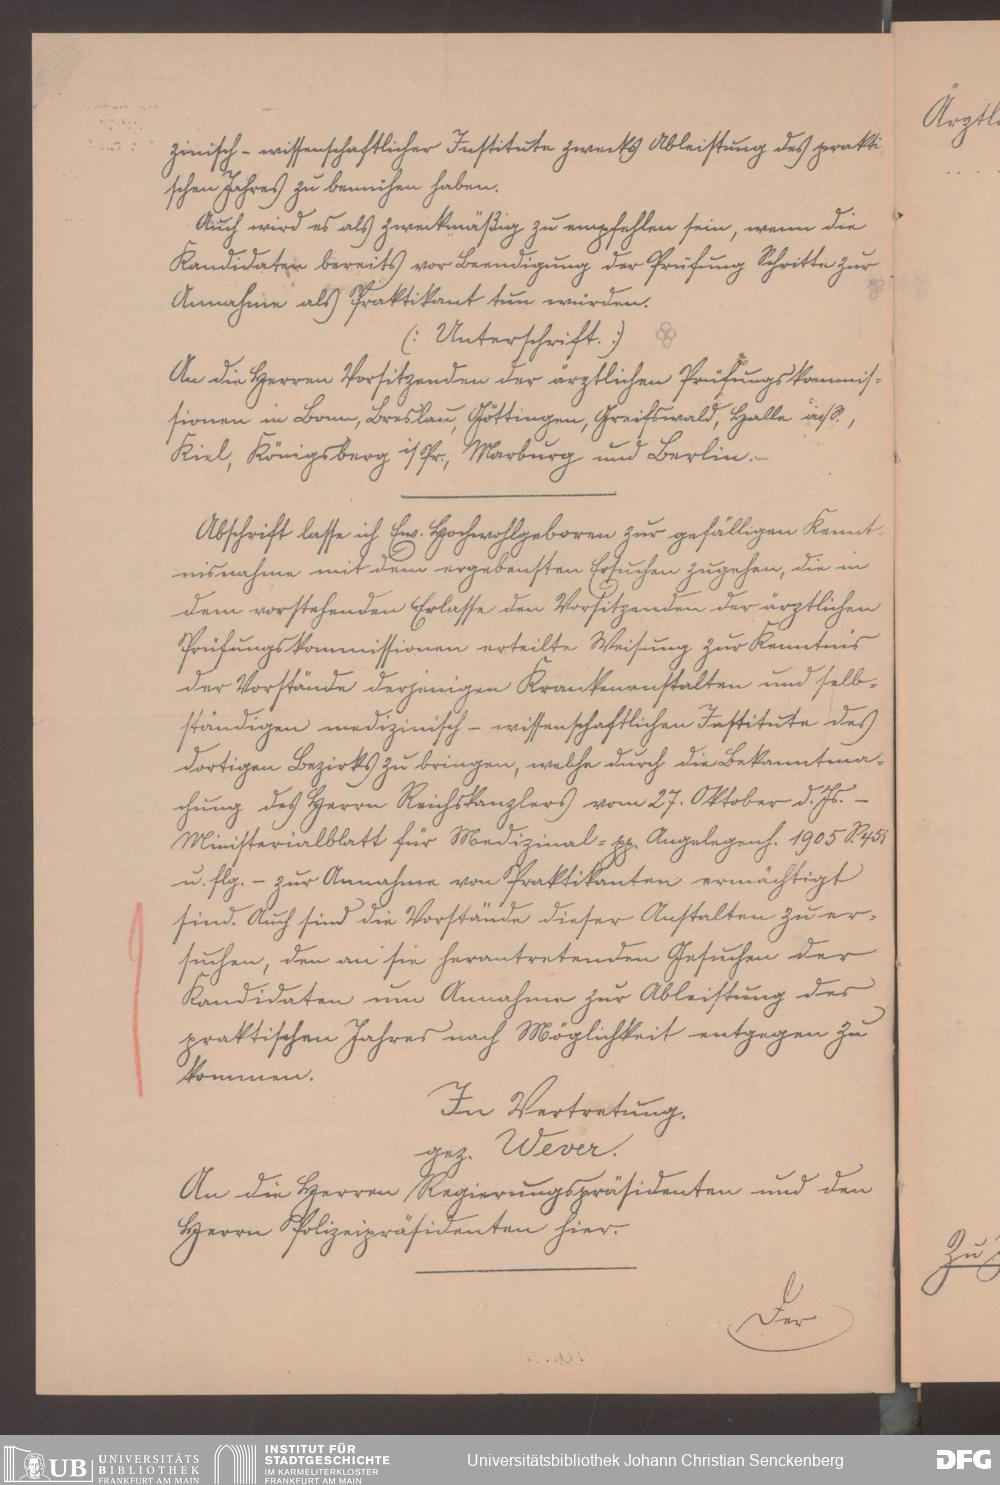 zinisch-wissenschaftlicher Institute zwecks Ableistung des prakti
schen Jahres zu bemühen haben.
Auch wird es als zweckmäßig zu empfehlen sein, wenn die
Kandidaten bereits vor Beendigung der Prüfung Schritte zur
Annahme als Praktikant tun würden.
(: Unterschrift. :)
An die Herren Vorsitzenden der ärztlichen Prüfungskommis-
sionen in Bonn, Breslau, Göttingen, Greifswald, Halle a/S.,
Kiel, Königsberg i/Pr., Marburg und Berlin.-
Abschrift lasse ich Ew. Hochwohlgeboren zur gefälligen Kennt-
nisnahme mit dem ergebensten Ersuchen zugehen, die in
dem vorstehenden Erlasse den Vorsitzenden der ärztlichen
Prüfungskommissionen erteilte Weisung zur Kenntnis
der Vorstände derjenigen Krankenanstalten und selb-
ständigen medizinisch-wissenschaftlichen Institute des
dortigen Bezirks zu bringen, welche durch die Bekanntma-
chung des Herrn Reichskanzlers vom 27. Oktober d. Js. -
Ministerialblatt für Medizinal- pp. Angelegenh. 1905 S.
u. flg. - zur Annahme von Praktikanten ermächtigt
sind. Auch sind die Vorstände dieser Anstalten zu er-
suchen, den an sie herantretenden Gesuchen der
Kandidaten um Annahme zur Ableistung des
praktischen Jahres nach Möglichkeit entgegen zu
kommen.
In Vertretung.
gez. Wever.
An die Herren Regierungspräsidenten und den
Herrn Polizeipräsidenten hier.
Der
Ärztli
Zu
UB UNIVERSITÄTS
BIBLIOTHEK
FRANKFURT AM MAIN
INSTITUT FÜR
STADTGESCHICHTE
IM KARMELITERKLOSTER
FRANKFURT AM MAIN
Universitätsbibliothek Johann Christian Senckenberg
DFG